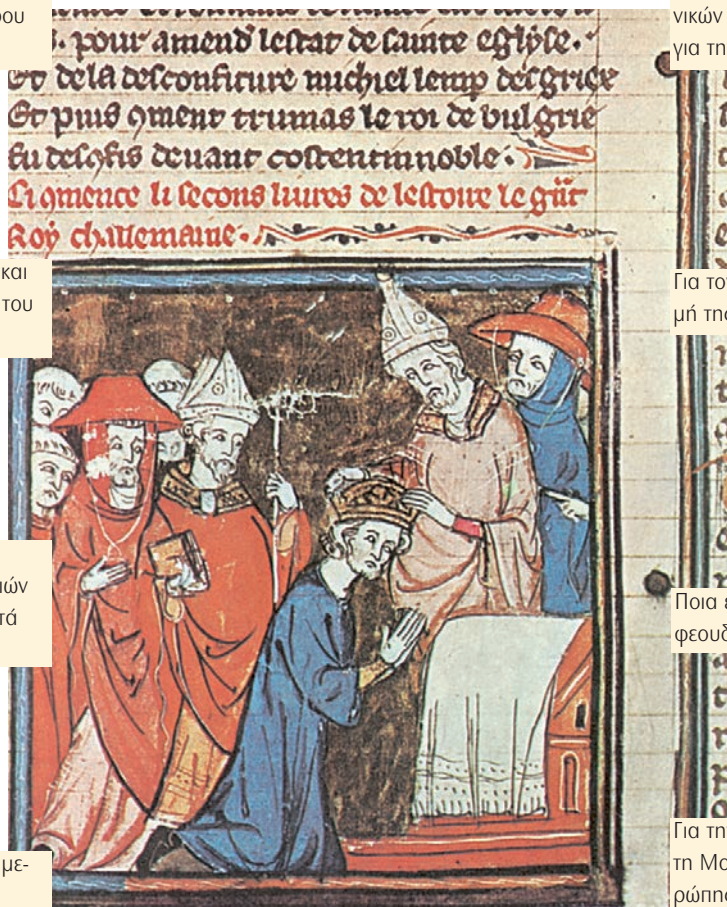 ου
νικών
για τη
s. pour amend lestat de sainte eglyse.
Et de la desconfiture michiel lemp des griex
Et puis qment trumas le roi de bulgrie
fu desqfis deuant costentinnoble.
Ci qmence li secons liures de lestoire le gnt
Roy challemaine.
και
του
Για το
μή της
ιών
τά
Ποια ε
φεουδ
με-
Για τη
τη Μο
ρώπης